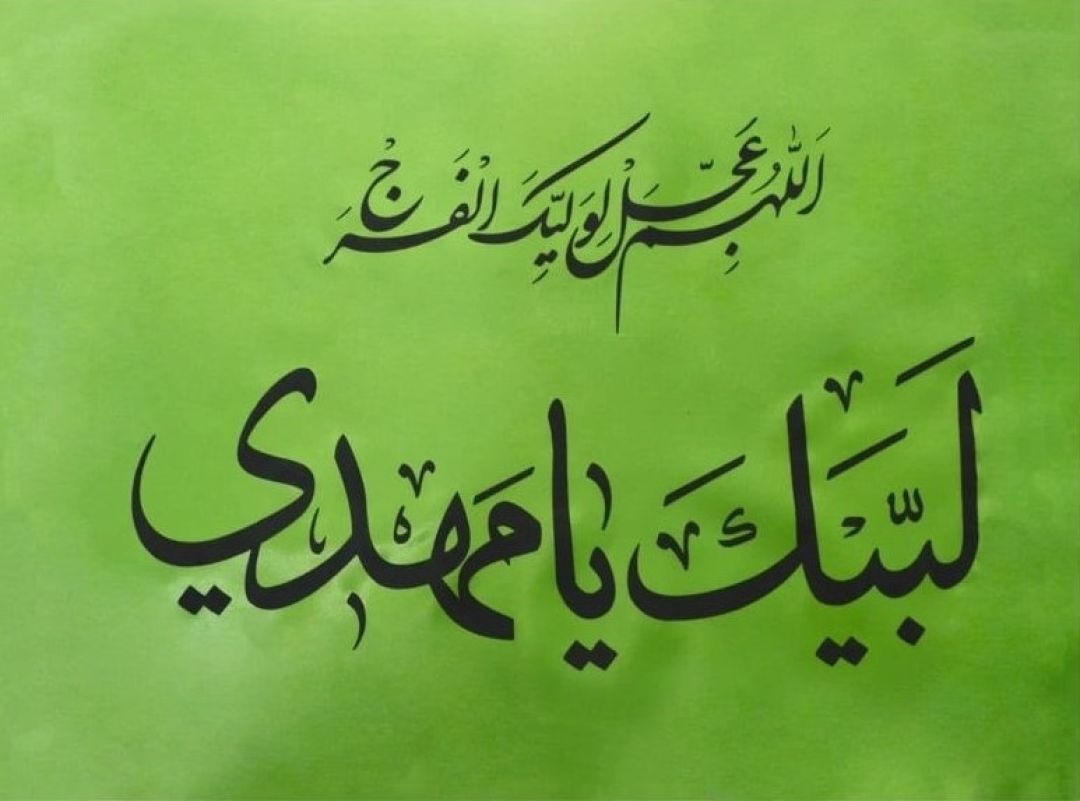 اَللّٰهُمَّ عَجِّلْ لِوَلِیِّکَ الْفَرَجْ
لَبَّيْكَ يا مَهدي